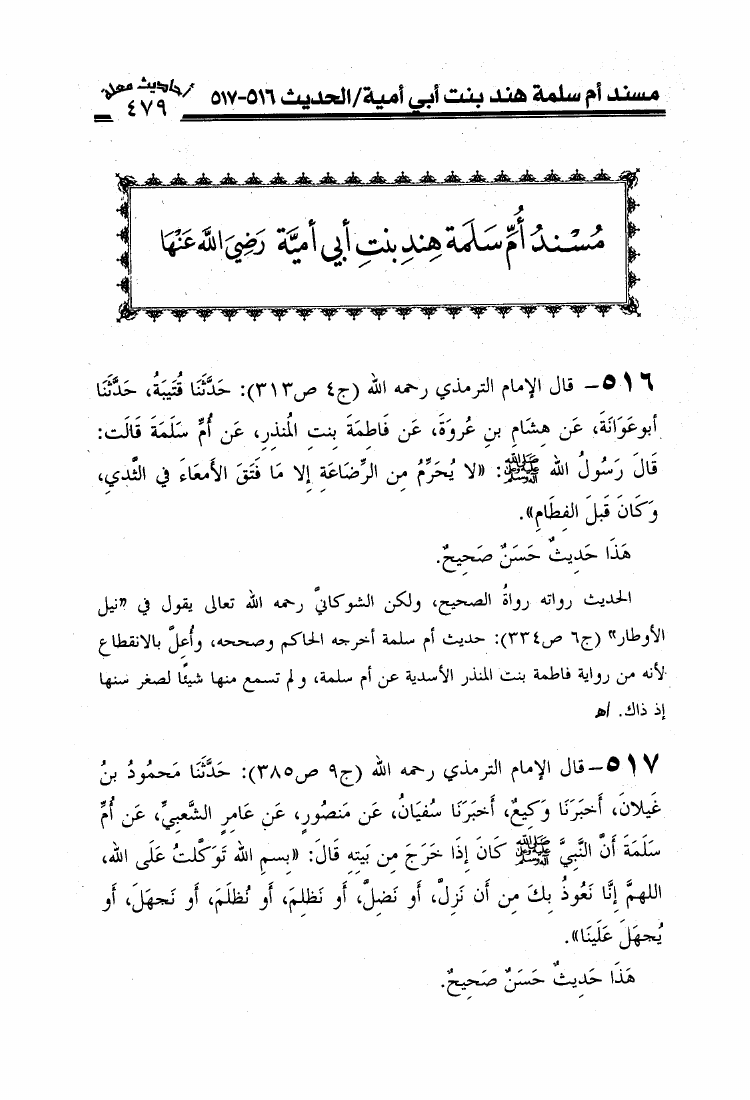 مسند أم سلمة هند بنت أبي أمية/الحديث ٥١٦-٥١٧
أحاديث معلة
٤٧٩
مُسْنَدُ أُمِّ سَلَمَة هِندِ بنتِ أبي أميَّة رَضِيَ اللَّه عَنْهَا
٥١٦– قال الإمام الترمذي رحمه الله (ج٤ ص٣١٣): حَدَّثَنَا قُتَيبَةُ، حَدَّثَنَا
أبوعَوَانَةَ، عَن هِشَامِ بنِ عُروَةَ، عَن فَاطِمَةَ بنتِ المُنذِرِ، عَن أُمِّ سَلَمَةَ قَالَت:
قَالَ رَسُولُ الله ﷺ: «لا يُحَرِّمُ مِن الرِّضَاعَةِ إلا مَا فَتَقَ الأَمعَاءَ في الثَّديِ،
وَكَانَ قَبلَ الفِطَامِ».
هَذَا حَدِيثٌ حَسَنٌ صَحِيحٌ.
الحديث رواته رواةُ الصحيح، ولكن الشوكانيَّ رحمه الله تعالى يقول في «نيل
الأوطار» (ج٦ ص٣٣٤): حديث أم سلمة أخرجه الحاكم وصححه، وأُعلَّ بالانقطاع
لأنه من رواية فاطمة بنت المنذر الأسدية عن أم سلمة، ولم تسمع منها شيئًا لصغر سنها
إذ ذاك. اﻫ
٥١٧– قال الإمام الترمذي رحمه الله (ج٩ ص٣٨٥): حَدَّثَنَا مَحمُودُ بنُ
غَيلانَ، أَخبَرَنَا وَكِيعٌ، أَخبَرَنَا سُفيَانُ، عَن مَنصُورٍ، عَن عَامِرٍ الشَّعبِيِّ، عَن أُمِّ
سَلَمَةَ أَنَّ النَّبِيَّ ﷺ كَانَ إِذَا خَرَجَ مِن بَيتِهِ قَالَ: «بِسمِ الله تَوَكَّلتُ عَلَى الله،
اللهمَّ إِنَّا نَعُوذُ بِكَ مِن أَن نَزِلَّ، أَو نَضِلَّ، أَو نَظلِمَ، أَو نُظلَمَ، أَو نَجهَلَ، أَو
يُجهَلَ عَلَينَا».
هَذَا حَدِيثٌ حَسَنٌ صَحِيحٌ.